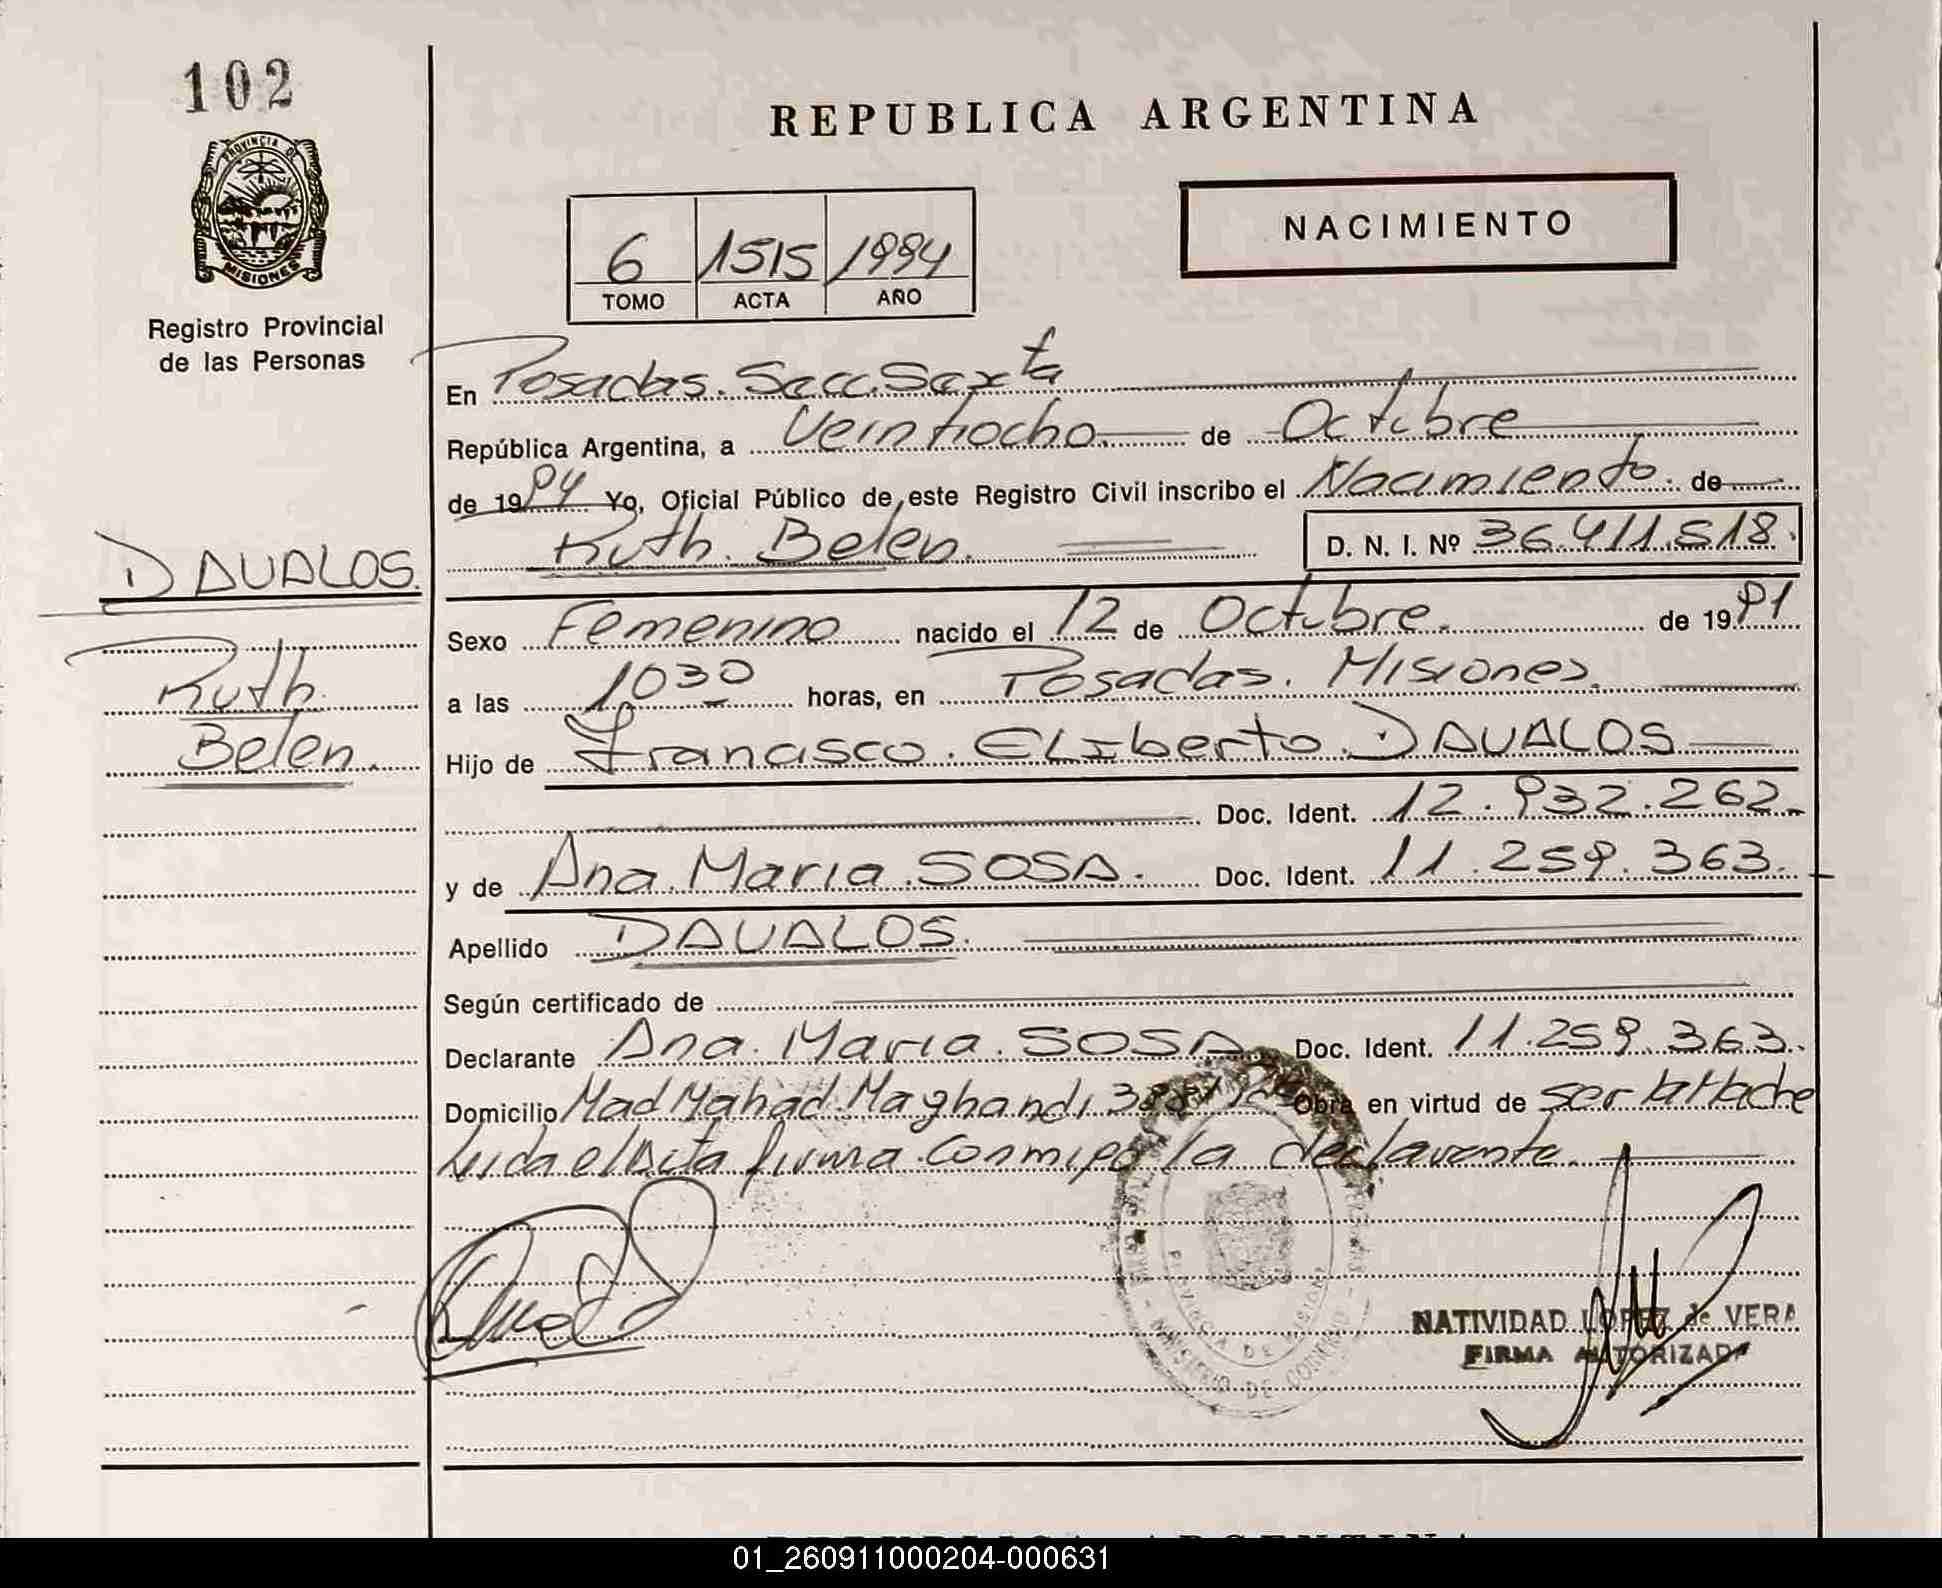 102
PROVINCIA DE
MISIONES
Registro Provincial
de las Personas
REPUBLICA ARGENTINA
NACIMIENTO
6 1515 1994
TOMO ACTA AÑO
En Posadas. Secc. Sexta
República Argentina, a Veintiocho de Octubre
de 1994 Yo, Oficial Público de este Registro Civil inscribo el Nacimiento. de
Ruth. Belen. D. N. I. Nº 36.411.518.
DAVALOS.
Ruth
Belen.
Sexo Femenino nacido el 12 de Octubre. de 1991
a las 1030 horas, en Posadas. Misiones.
Hijo de Francisco. Eliberto. DAVALOS
Doc. Ident. 12.932.262.
y de Ana. Maria. SOSA. Doc. Ident. 11.259.363.
Apellido DAVALOS.
Según certificado de
Declarante Ana. Maria. SOSA Doc. Ident. 11.259.363.
Domicilio Obra en virtud de ser
Leida el Acta firma conmigo la declarante.
PROVINCIA DE MISIONES
MINISTERIO DE GOBIERNO
NATIVIDAD LOPEZ de VERA
FIRMA AUTORIZADA
REPUBLICA ARGENTINA
01_260911000204-000631